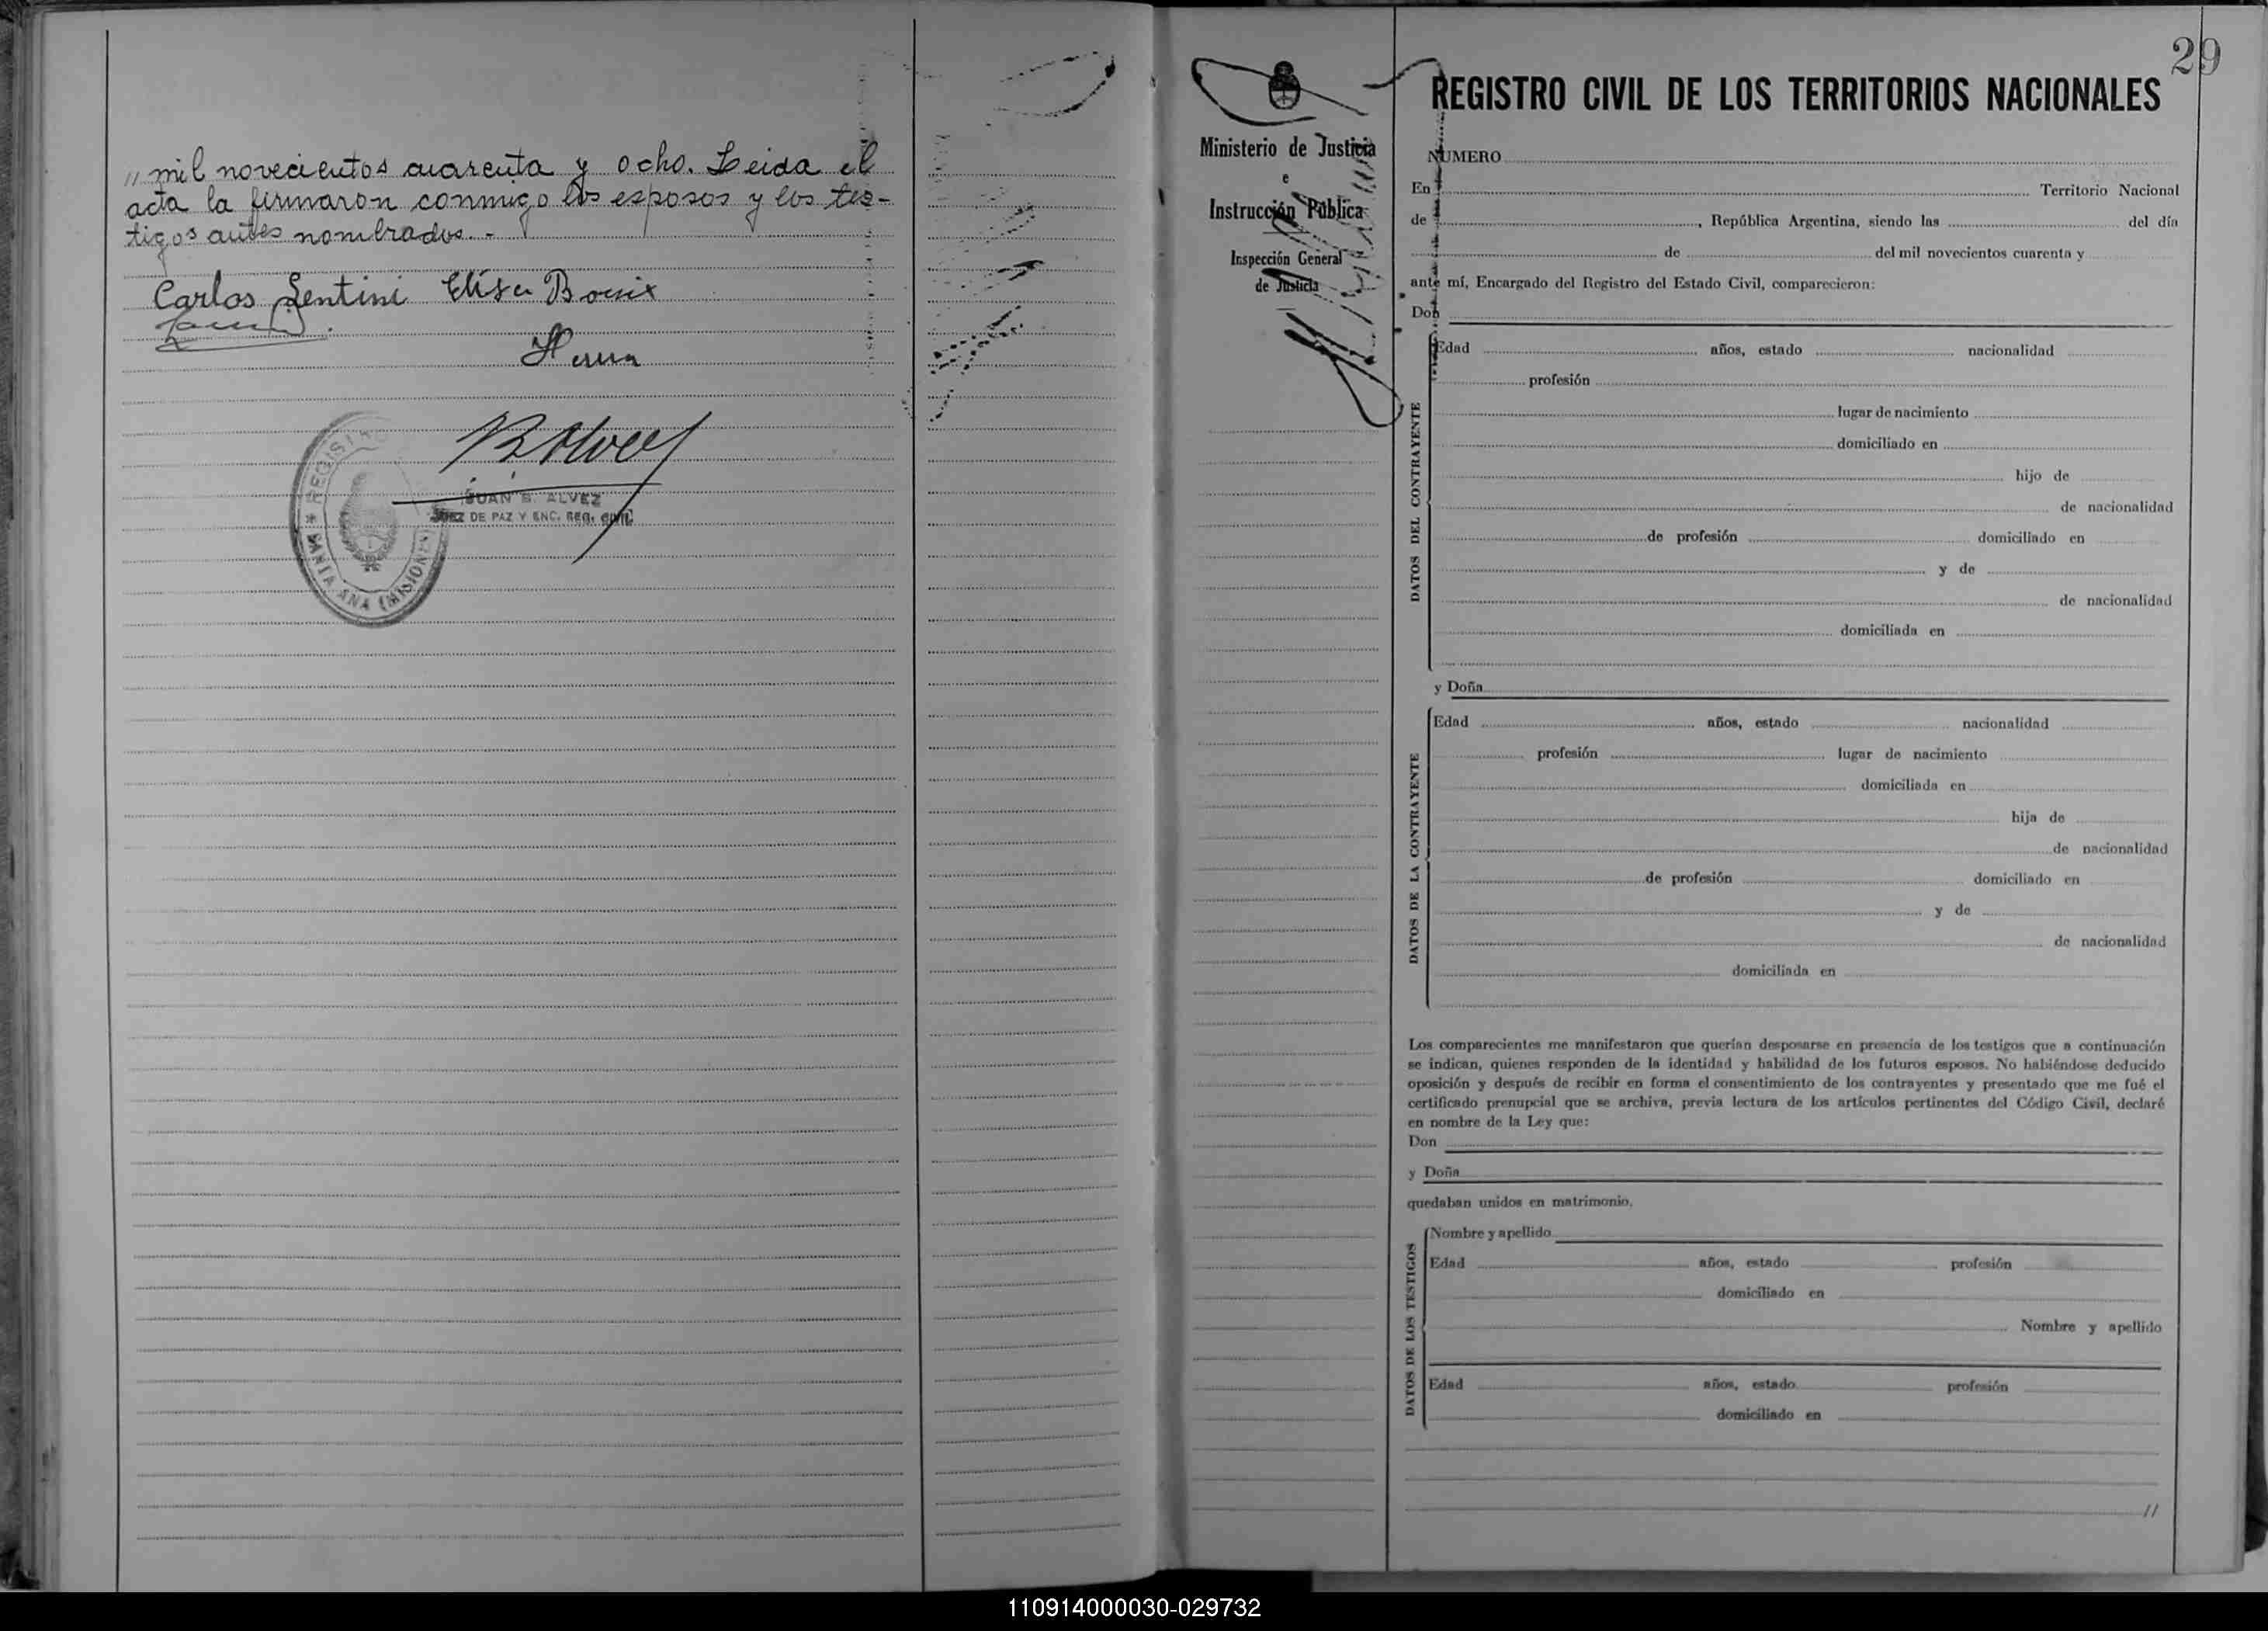 „ mil novecientos cuarenta y ocho. Leida el
acta la firmaron conmigo los esposos y los tes-
tigos antes nombrados.-
Carlos Sentini Elisa
REGISTRO
SANTA ANA (MISIONES)
JUAN B. ALVEZ
JUEZ DE PAZ Y ENC. REG. CIVIL
29
Ministerio de Justicia
e
Instrucción Pública
Inspección General
de Justicia
REGISTRO CIVIL DE LOS TERRITORIOS NACIONALES
NUMERO
En Territorio Nacional
de , República Argentina, siendo las del día
de del mil novecientos cuarenta y
ante mí, Encargado del Registro del Estado Civil, comparecieron:
Don
DATOS DEL CONTRAYENTE
Edad años, estado nacionalidad
profesión
lugar de nacimiento
domiciliado en
hijo de
de nacionalidad
de profesión domiciliado en
y de
de nacionalidad
domiciliada en
y Doña
DATOS DE LA CONTRAYENTE
Edad años, estado nacionalidad
profesión lugar de nacimiento
domiciliada en
hija de
de nacionalidad
de profesión domiciliado en
y de
de nacionalidad
domiciliada en
Los comparecientes me manifestaron que querían desposarse en presencia de los testigos que a continuación
se indican, quienes responden de la identidad y habilidad de los futuros esposos. No habiéndose deducido
oposición y después de recibir en forma el consentimiento de los contrayentes y presentado que me fué el
certificado prenupcial que se archiva, previa lectura de los artículos pertinentes del Código Civil, declaré
en nombre de la Ley que:
Don
y Doña
quedaban unidos en matrimonio.
DATOS DE LOS TESTIGOS
Nombre y apellido
Edad años, estado profesión
domiciliado en
Nombre y apellido
Edad años, estado profesión
domiciliado en
//
110914000030-029732